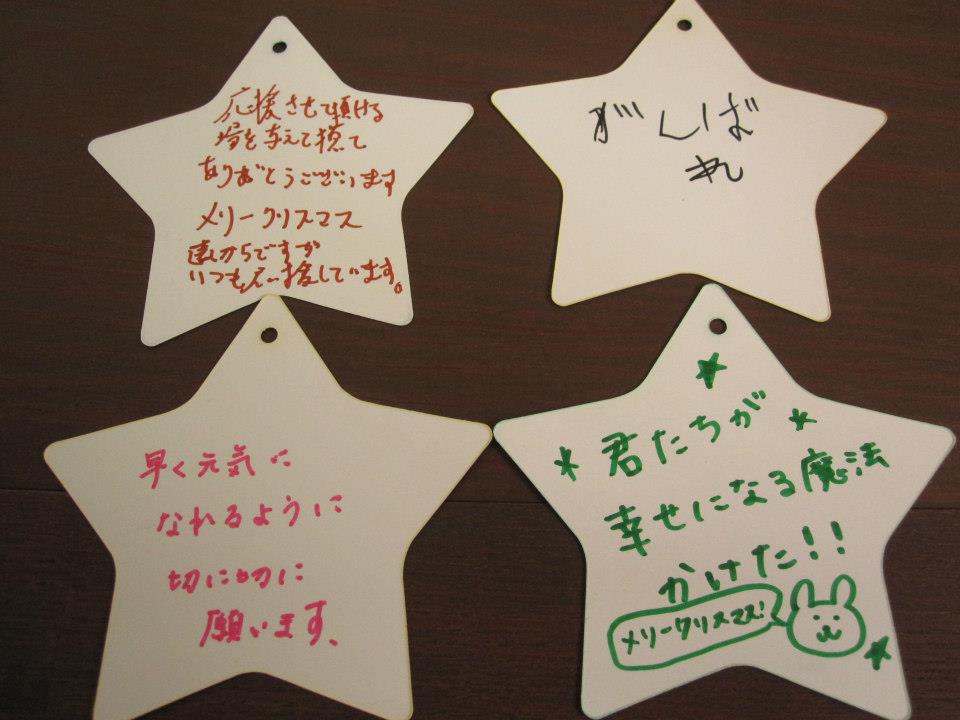 応援させて頂ける
場を与えて捨て
ありがとうございます
メリークリスマス
遠くからですが
いつも応援しています。
がんば
れ
早く元気に
なれるように
切に切に
願います、
君たちが
幸せになる魔法
かけた!!
メリークリスマス!